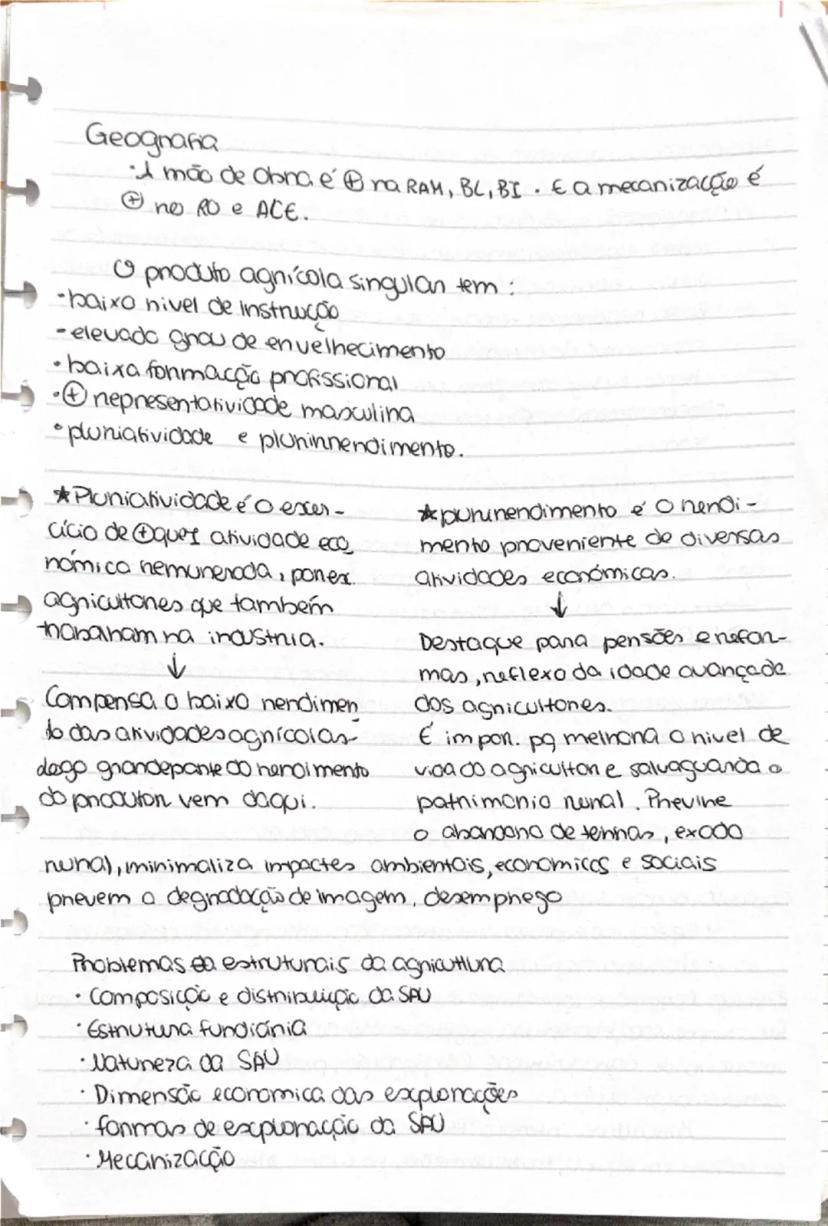 Geografia
· A mão de obra é ⊕ na RAM, BL, BI. E a mecanização é
⊕ no RO e ACE.
O produto agrícola singular tem:
· baixo nivel de instrucção
- elevado grau de envelhecimento
· baixa formacção profissional
· ⊕ representatividade masculina
· pluriatividade e plurirrendimento.
★ Pluriatividade é o exer-
cício de ⊕ que 1 atividade eco
nómica remunerada, por ex.
agricultores que também
trabalham na industria.
↓
Compensa o baixo rendimen
to das atividades agrícolas
logo grande parte do rendimento
do produtor vem daqui.
★ plurirendimento é o rendi-
mento proveniente de diversas
atividades económicas.
↓
Destaque para pensões e refor-
mas, reflexo da idade avançade
dos agricultores.
É impor. pq melhora o nivel de
vida do agricultor e salvaguarda o
patrimonio rural. Previne
o abandono de terras, exodo
rural, minimaliza impactes ambientais, economicos e sociais
prevem a degradação de imagem, desemprego
Problemas estruturais da agricultura
· Composição e distribuição da SAU
· Estrutura fundiária
· Natureza da SAU
· Dimensão economica das explorações
· formas de exploração da SAU
· Mecanização